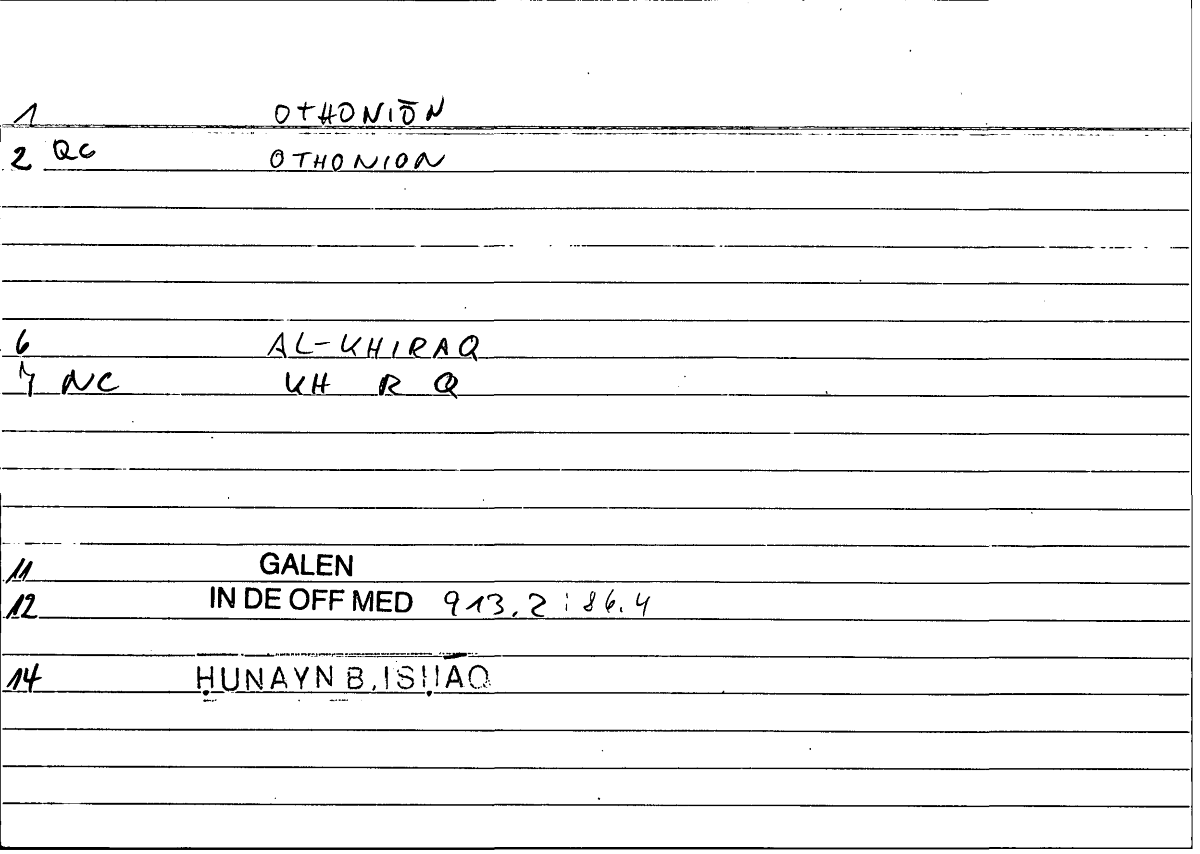 1 OTHONIŌN
2 QC OTHONION
6 AL-KHIRAQ
7 NC KH R Q
11 GALEN
12 IN DE OFF MED 913.2 : 86.4
14 ḤUNAYN B. ISḤĀQ